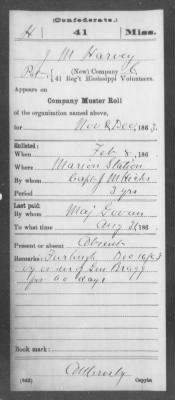 (Confederate.)
H 41 Miss.
J M Harvey
Pvt, (New) Company
41 Reg't Mississippi Volunteers.
Appears on
Company Muster Roll
of the organization named above,
for Nov & Dec, 1863.
Enlisted:
When Feb 8, 186
Where Marion Station
By whom Capt J M Hicks
Period 3 yrs
Last paid:
By whom Maj
To what time Aug 31, 186
Present or absent Absent
Remarks: Furlough Dec 16/63
by order of Gen Bragg
for 60 days
Book mark:
(642) Copyist.